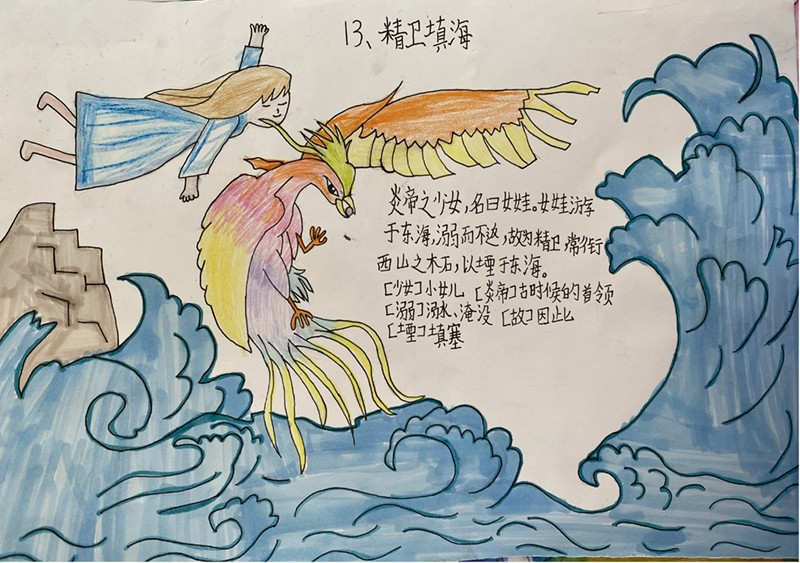 13、精卫填海
炎帝之少女，名曰女娃。女娃游
于东海，溺而不返，故为精卫，常衔
西山之木石，以堙于东海。
[少女]小女儿 [炎帝]古时候的首领
[溺]溺水、淹没 [故]因此
[堙]填塞